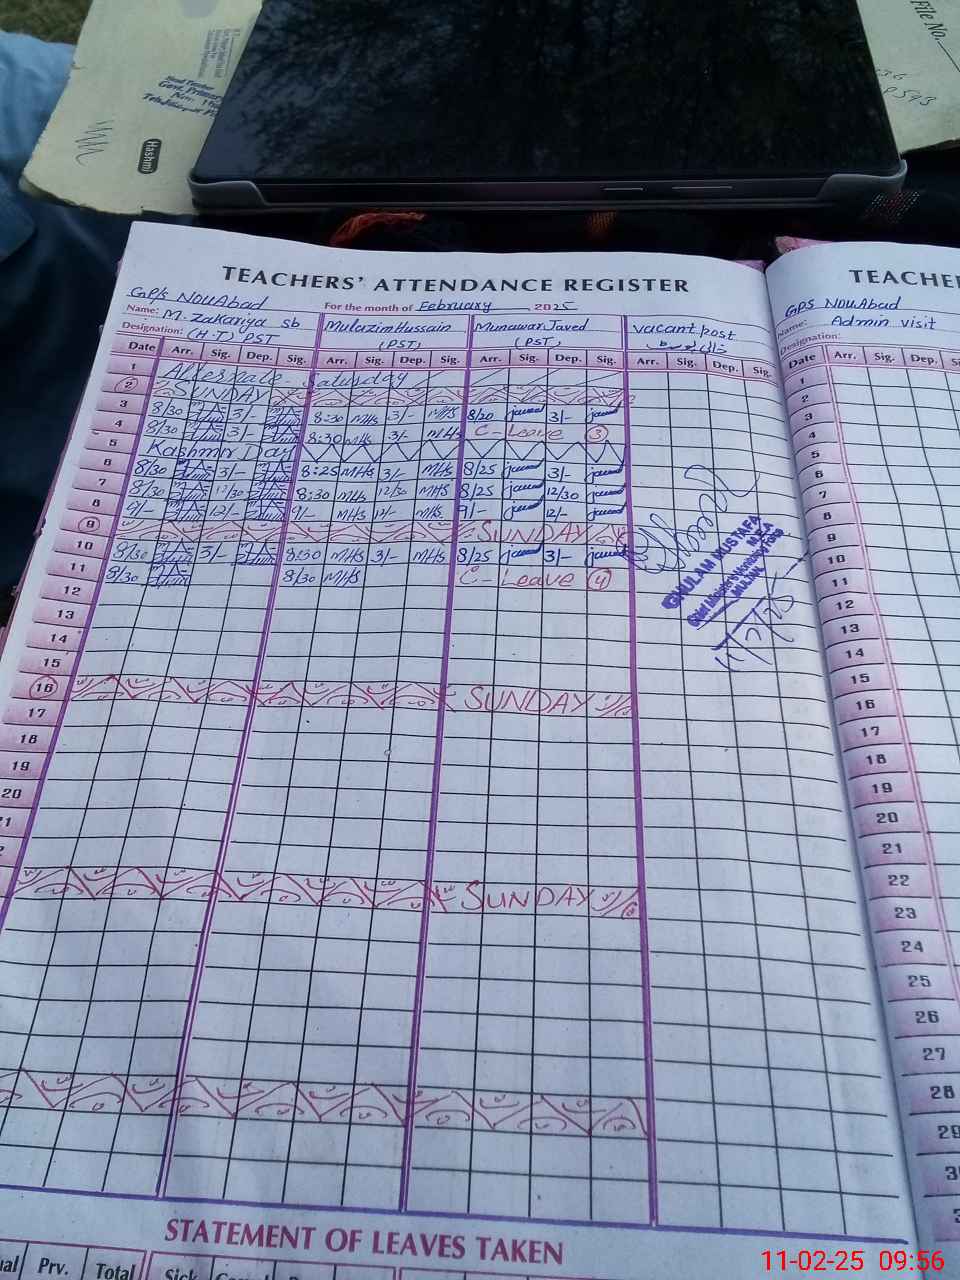 Hashmi
File No.
TEACHERS' ATTENDANCE REGISTER
GP/s NouAbad
For the month of February 2025
Name: M. Zakariya sb
Mulazim Hussain
Munawar Javed
vacant post
Designation: (H.T) PST
(PST)
(PST)
Date Arr. Sig. Dep. Sig. Arr. Sig. Dep. Sig. Arr. Sig. Dep. Sig. Arr. Sig. Dep. Sig.
1 Alternate Saturday
2 SUNDAY
3 8/30 3/- 8:30 MHS 3/- MHS 8/20 3/-
4 8/30 3/- 8:30 MHS 3/- MHS C-Leave 3
5 Kashmir Day
6 8/30 3/- 8:25 MHS 3/- MHS 8/25 3/-
7 8/30 12/30 8:30 MHS 12/30 MHS 8/25 12/30
8 9/- 12/- 9/- MHS 12/- MHS 9/- 12/-
9 SUNDAY
10 8/30 3/- 8:30 MHS 3/- MHS 8/25 3/-
11 8/30 8/30 MHS C-Leave 4
12
13
14
15
16 SUNDAY
17
18
19
20
SUNDAY
GHULAM MUSTAFA
MULTAN
STATEMENT OF LEAVES TAKEN
Prv. Total
TEACHE
GPS NouAbad
Name: Admin visit
Designation:
Date Arr. Sig. Dep.
1
2
3
4
5
6
7
8
9
10
11
12
13
14
15
16
17
18
19
20
21
22
23
24
25
26
27
28
29
11-02-25 09:56